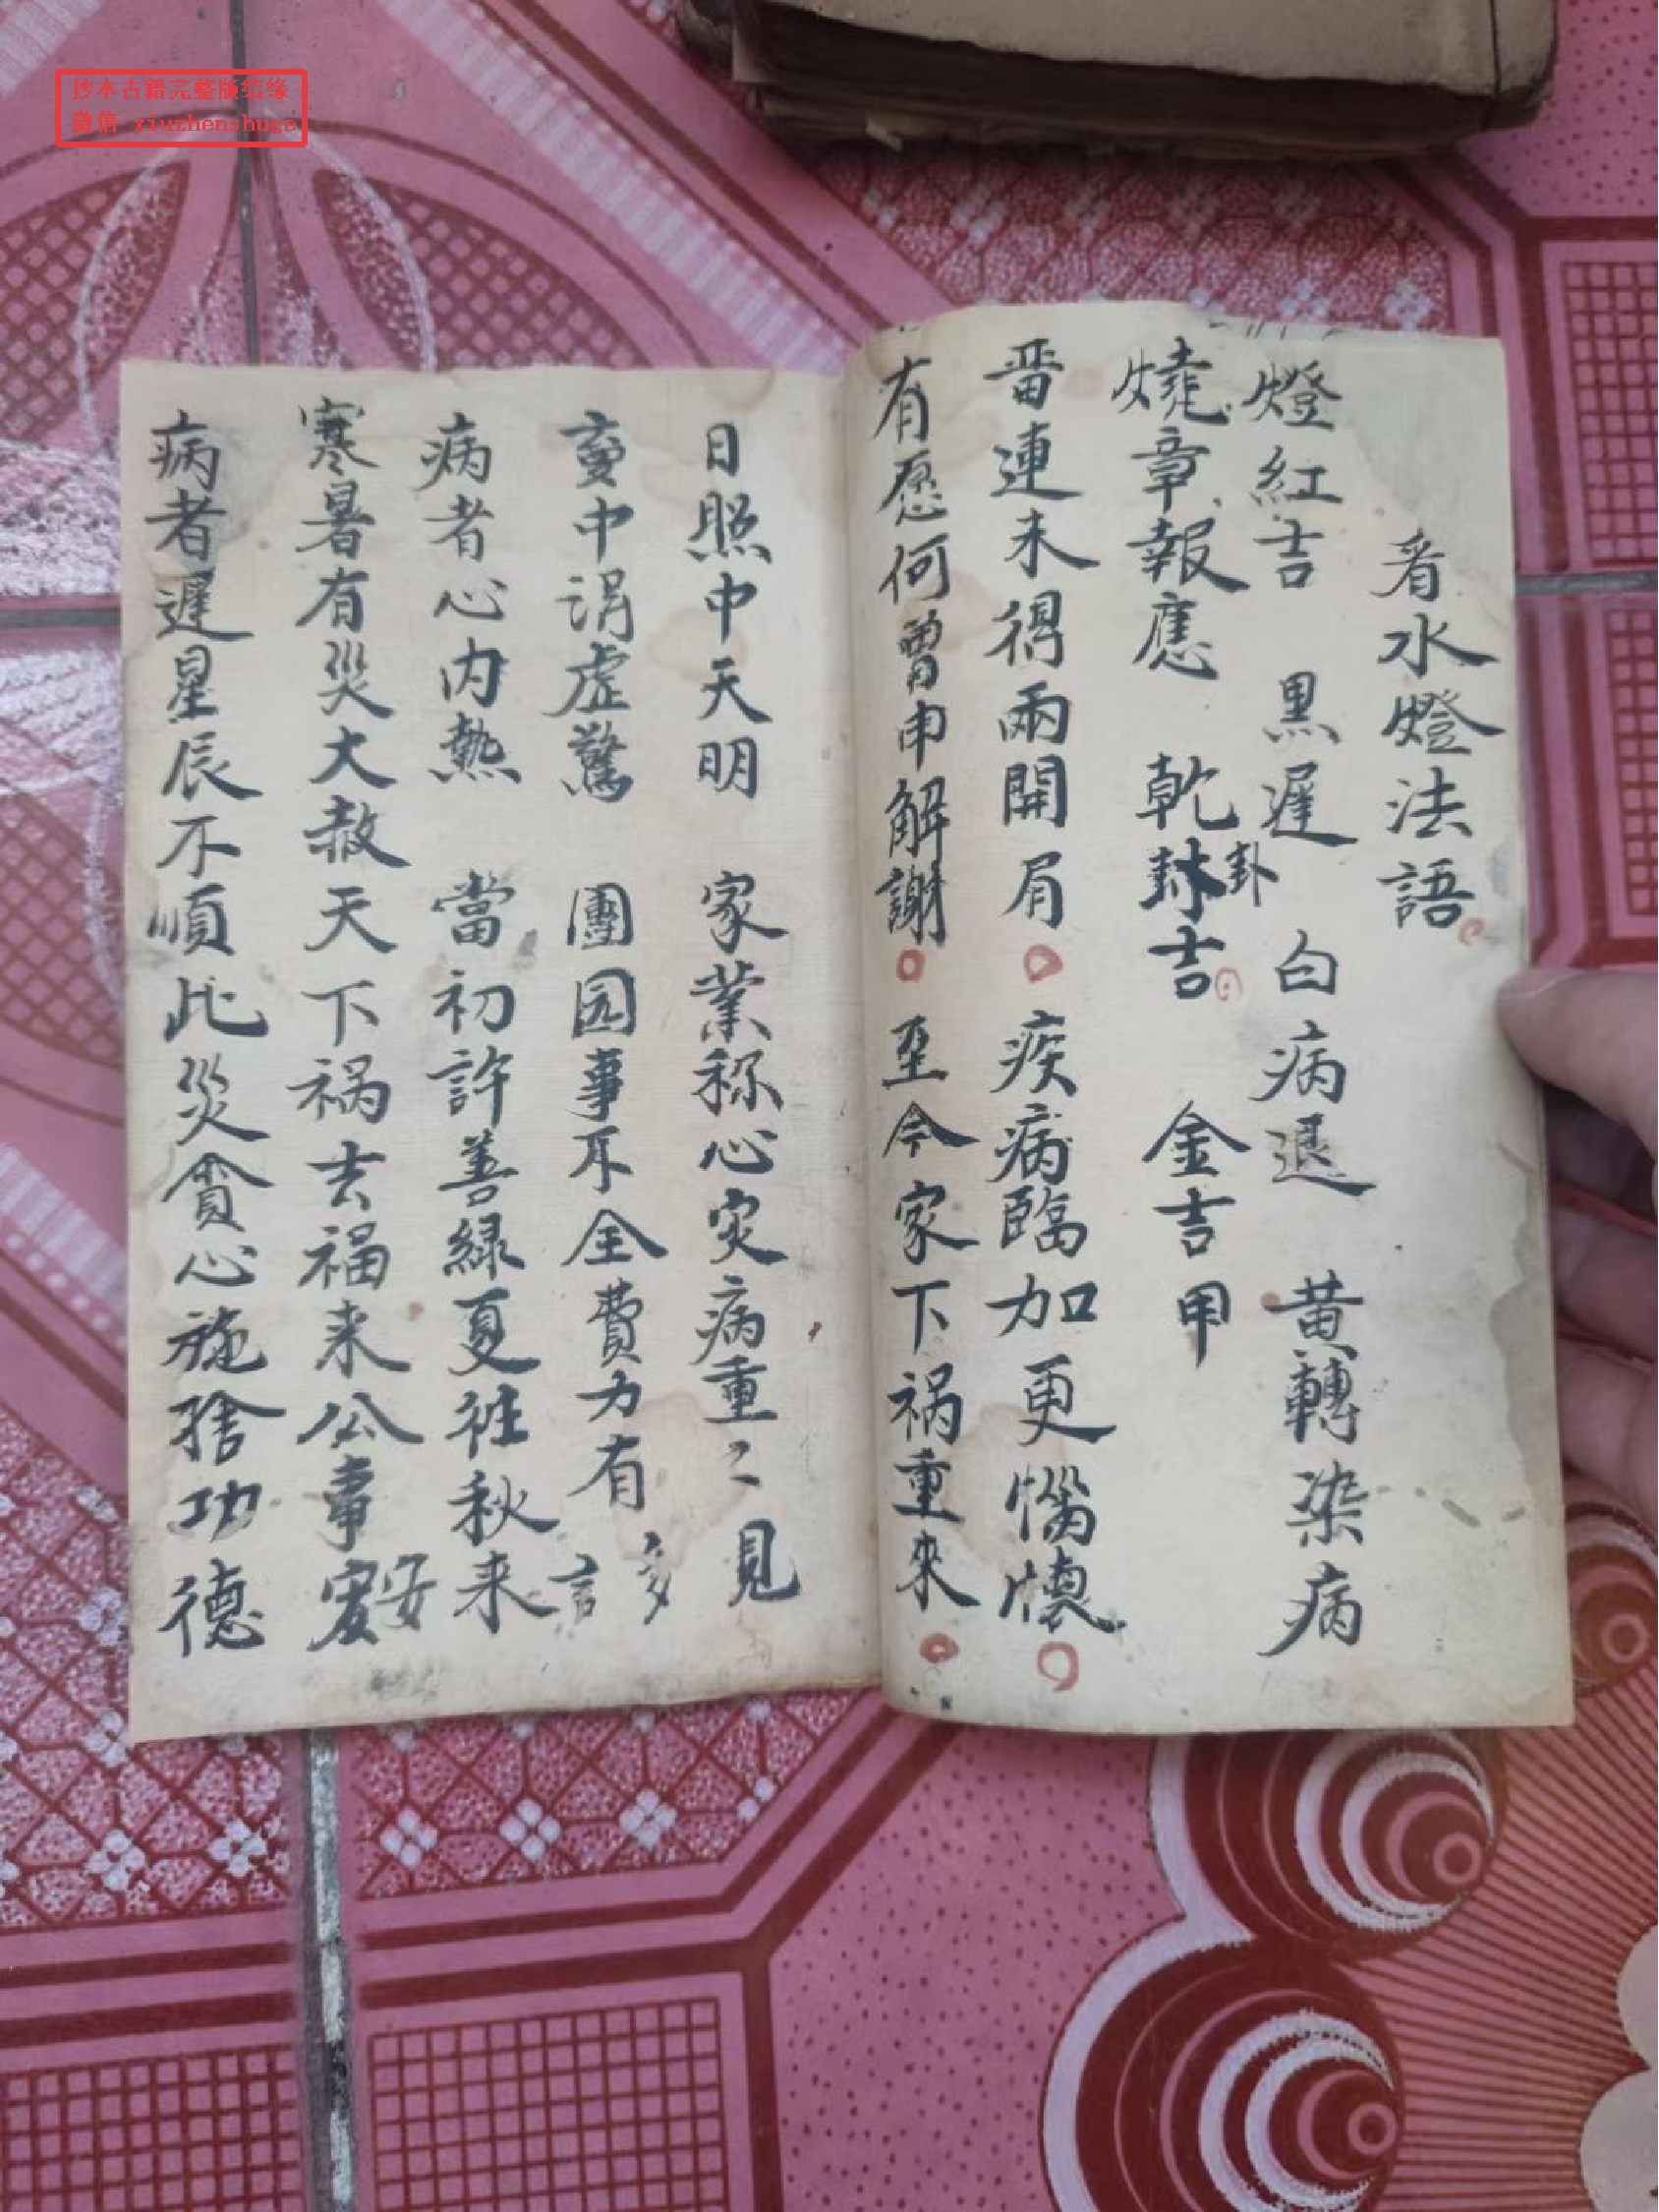 抄本古籍完整版结缘
微信 xiuzhenshuge
看水燈法語
燈紅吉 黒遲 白病退 黄轉染病
燒章報應 乾封卦吉 金吉甲
番連未得兩開眉 疾病臨加更惱懷
有愿何曾申解謝 至今家下祸重來
日照中天明 家業称心灾病重〻見
夢中涓虚驚 團园事不全費力有多言
病者心内熱 當初許善緑夏往秋来
寒暑有災大赦天下祸去福来公事安
病者遲星辰不順此災貪心施捨功德